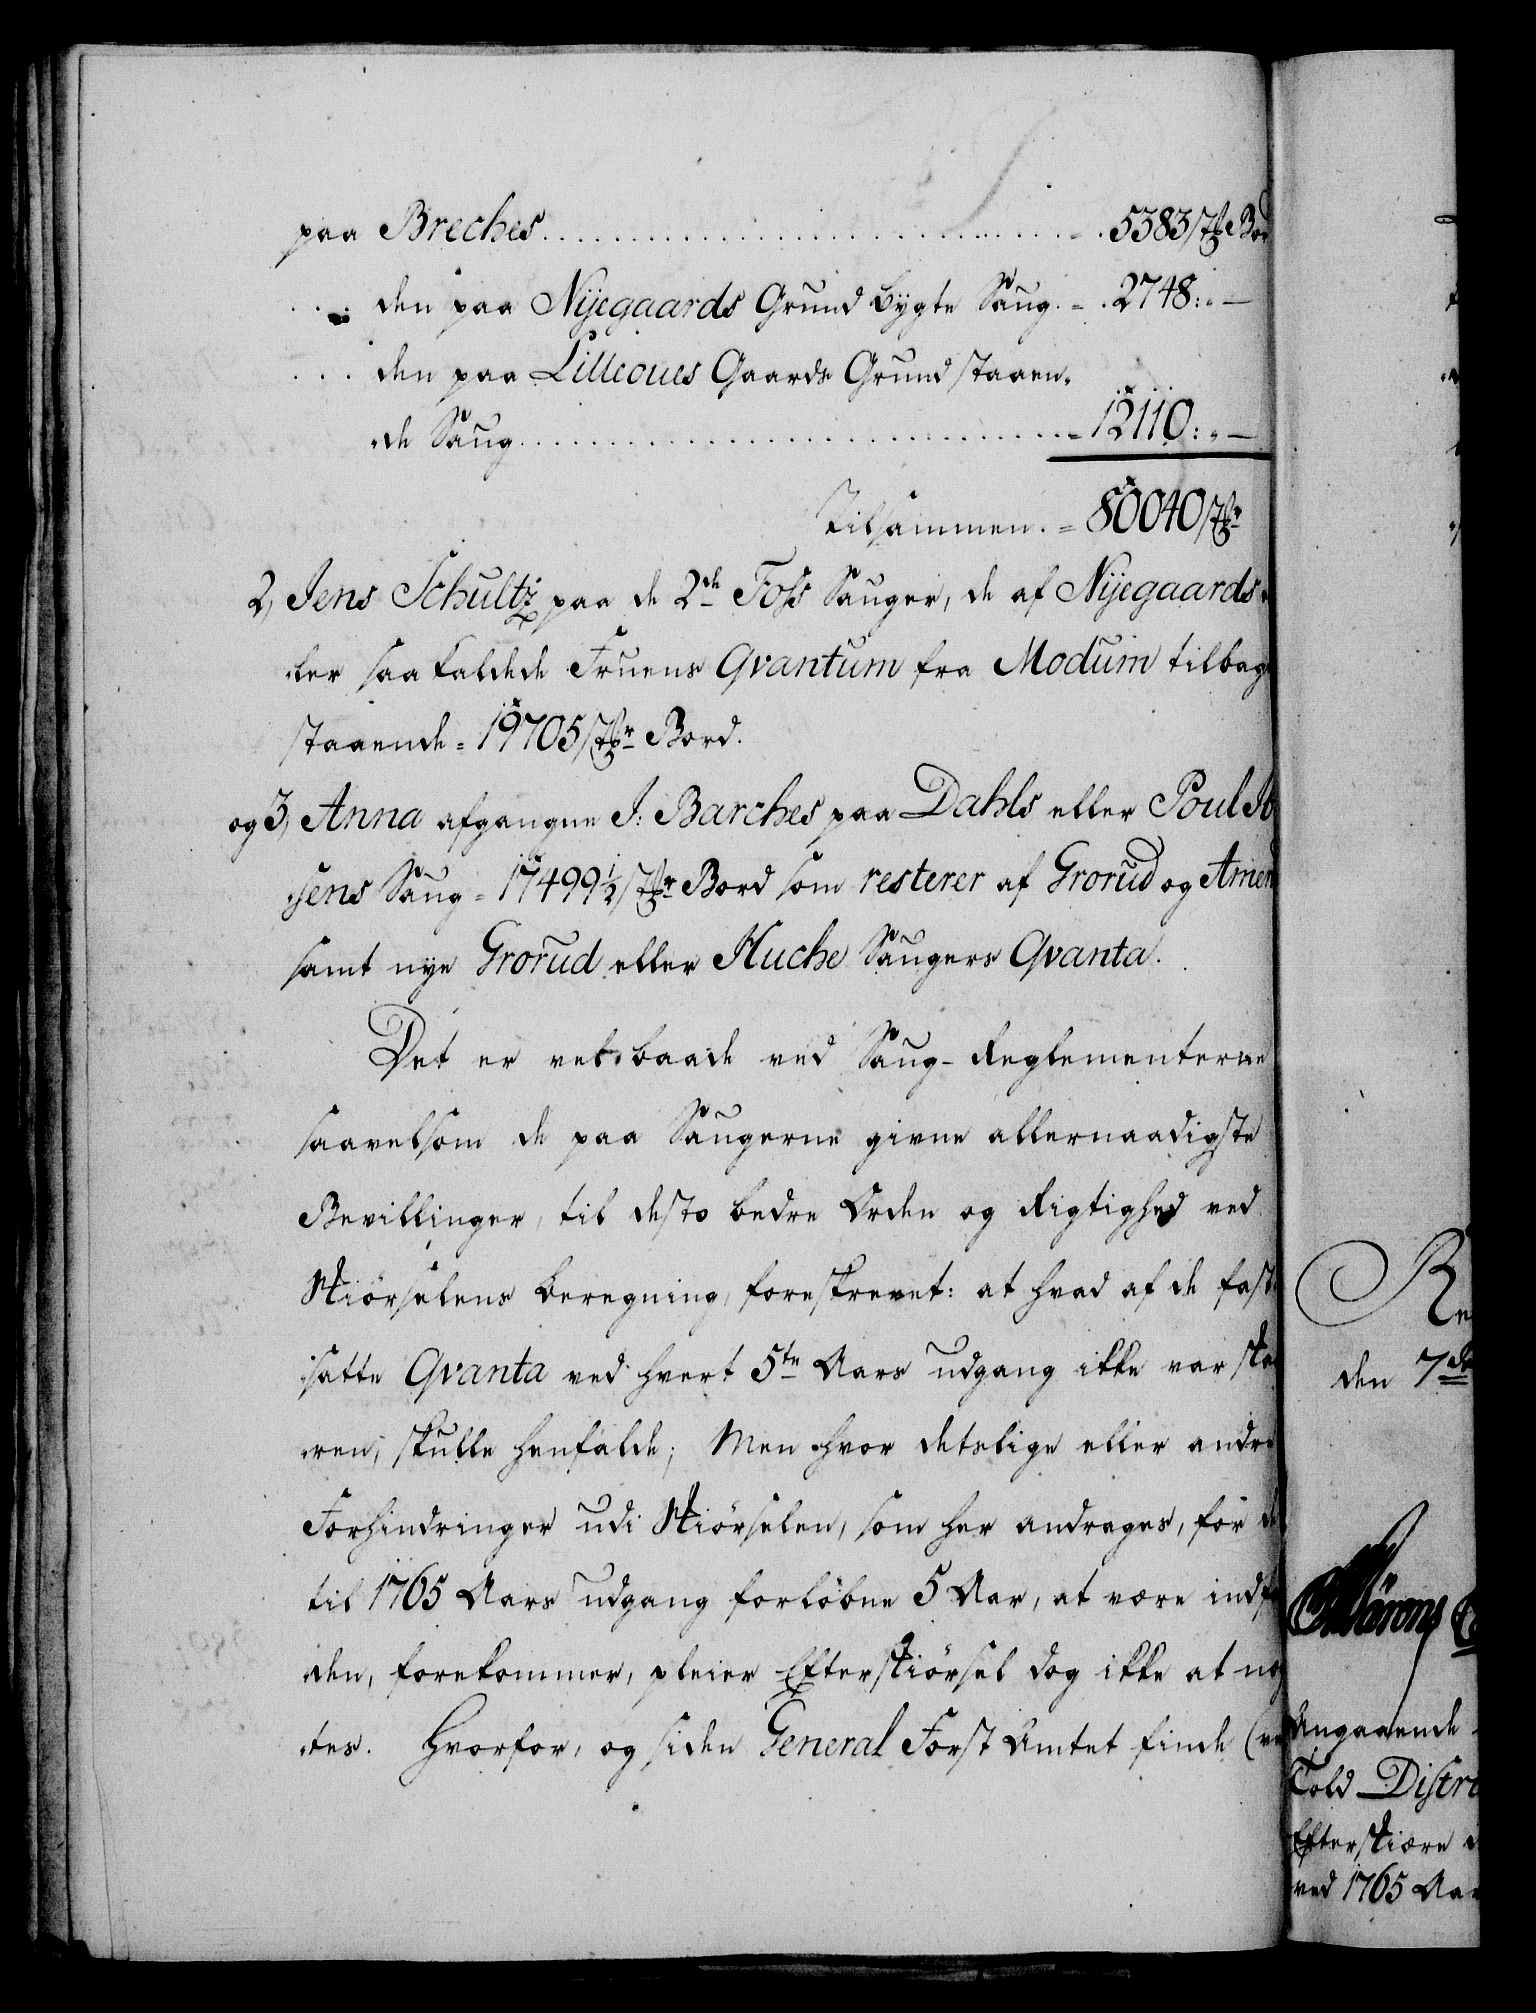 paa Breches . . . . . . . . . . 5383 st: Bor
. . . den paa Nijegaards Grund bÿgte Saug. = . 2748: " —
. . . den paa Lilleoues Gaards Grund staaen=
=de Saug . . . . . . . . . . = 12110: " —
Tilsammen. = 80040 stkr
2, Jens Schultz paa de 2de Foss Sauger, de af Nijegaards e
=ler saa kaldede Fruens Qvantum fra Modum tilbage
staaende = 19705 stkr Bord.
og 3, Anna afgangne J: Barches paa Dahls eller Poul Ib
=sens Saug = 17499½ stkr Bord som resterer af Grorud og Amen
samt nye Grorud eller Huche Saugers Qvanta.
Det er vel baade ved Saug-Reglementerne
saavelsom de paa Saugerne givne allernaadigste
Bevillinger, til desto bedre Orden og Rigtighed ved
Skiörselens beregning, foreskrevet: at hvad af de fast
=satte Qvanta ved hvert 5te Aars udgang ikke var skaa
=ren, skulle henfalde; Men hvor deslige eller andre
Forhindringer udi Skiörselen, som her andrages, for d
til 1765 Aars udgang forløbne 5 Aar, at være indf
=den, forekommer, pleier Efterskiörsel dog ikke at næg
=tes. Hvorfor, og siden General Forst Amtet finde (ve
Re
den 7de
Angaaende
Told Distri
Efterskiære
ved 1765 Aar